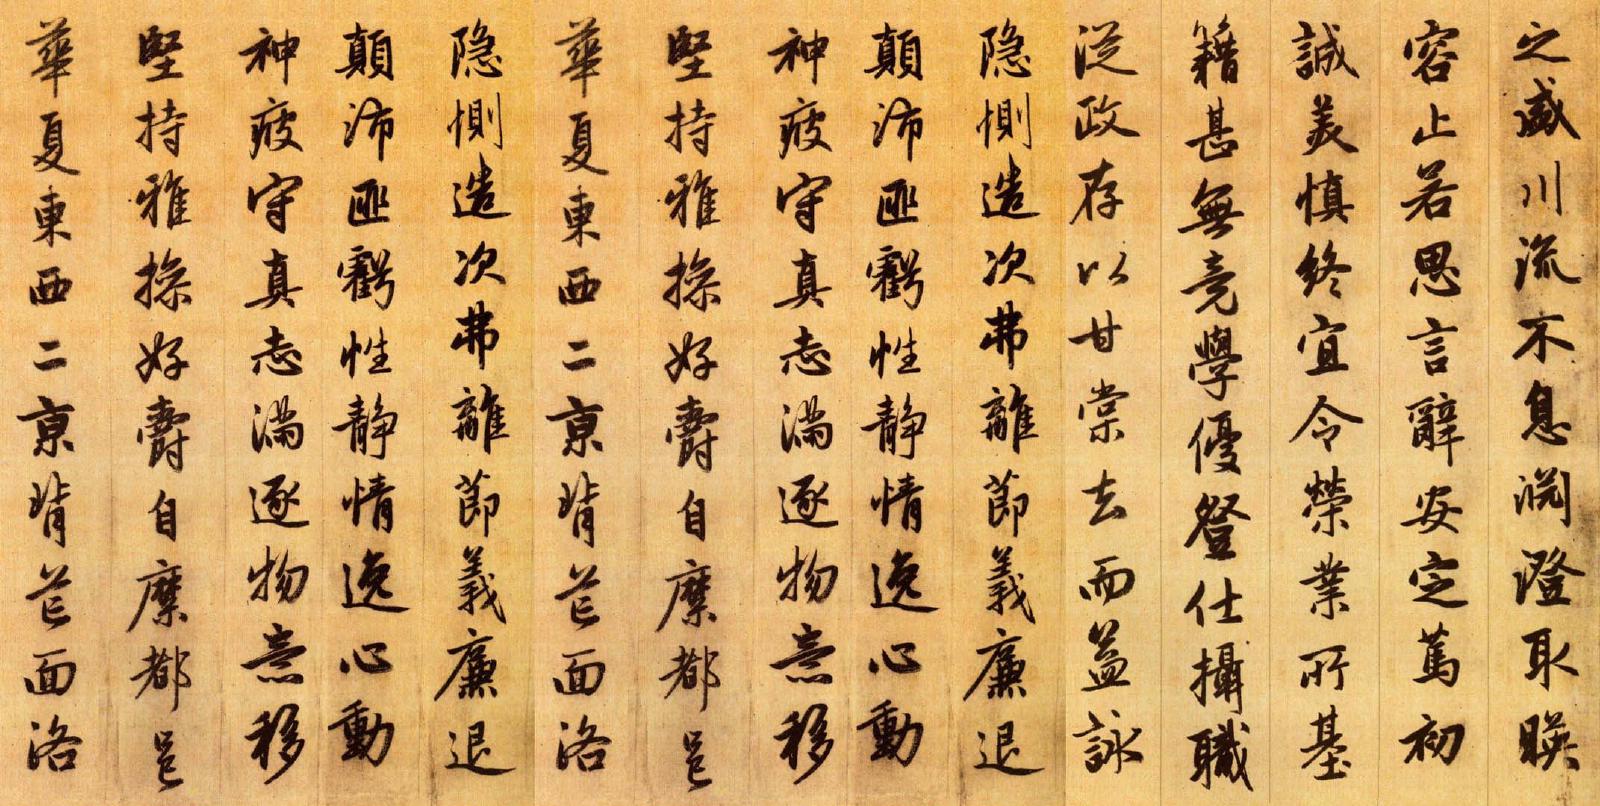 之盛川流不息渊澄取暎
容止若思言辭安定篤初
誠美慎終宜令榮業所基
籍甚無竟學優登仕攝職
從政存以甘棠去而益詠
隐惻造次弗離節義廉退
顛沛匪虧性静情逸心動
神疲守真志滿逐物意移
堅持雅操好爵自縻都邑
華夏東西二京背芒面洛
隐惻造次弗離節義廉退
顛沛匪虧性静情逸心動
神疲守真志滿逐物意移
堅持雅操好爵自縻都邑
華夏東西二京背芒面洛